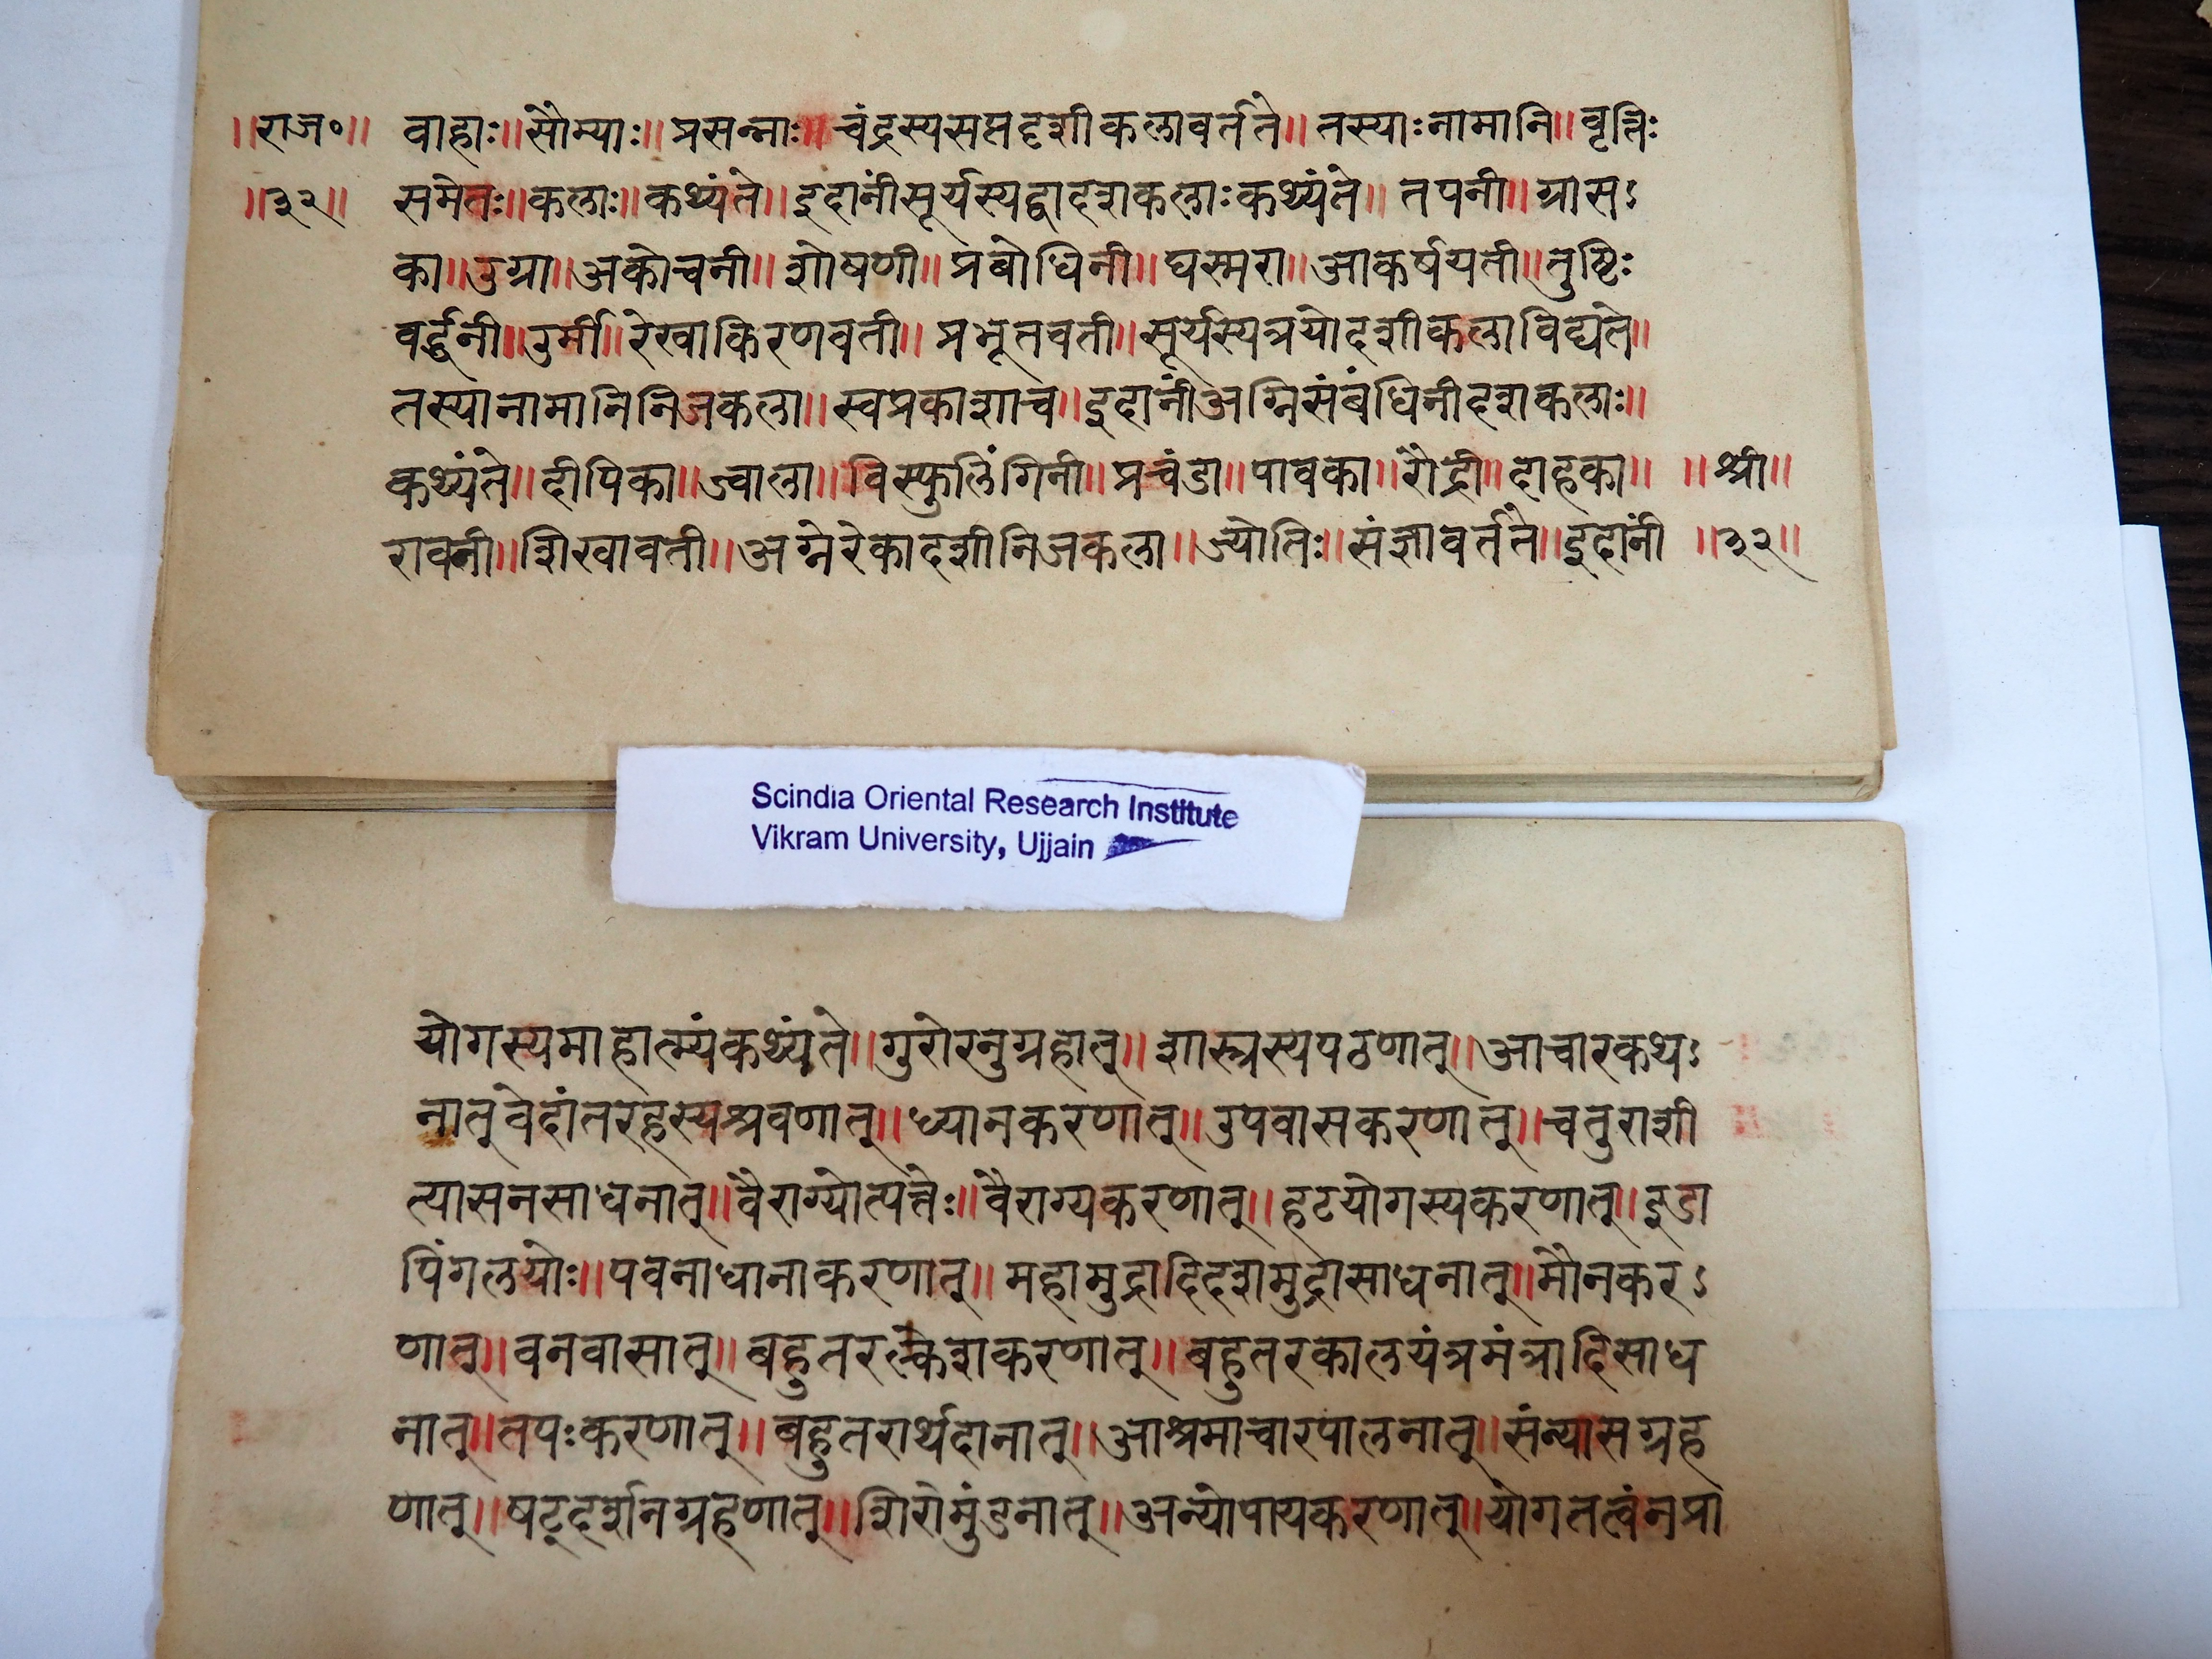 ॥राज०॥ वाहाः॥सौम्याः॥प्रसन्नाः॥चंद्रस्यसप्तदशीकलावर्तते॥तस्याःनामानि॥वृत्तिः
॥३२॥ समेतः॥कलाः॥कथ्यंते॥इदानींसूर्यस्यद्वादशकलाःकथ्यंते॥तपनी॥ग्रासऽ
का॥उग्रा॥अकोचनी॥शोषणी॥प्रबोधिनी॥घस्मरा॥आकर्षयती॥तुष्टिः
वर्द्धनी॥उर्मी॥रेखाकिरणवती॥प्रभूतवती॥सूर्यस्यत्रयोदशीकलाविद्यते॥
तस्यानामानिनिजकला॥स्वप्रकाशाच॥इदानींअग्निसंबंधिनीदशकलाः॥
कथ्यंते॥दीपिका॥ज्वाला॥विस्फुलिंगिनी॥प्रचंडा॥पावका॥रौद्री॥दाहका॥ ॥श्री॥
रावनी॥शिखावती॥अग्नेरेकादशीनिजकला॥ज्योतिः॥संज्ञावर्तते॥इदानीं ॥३२॥
Scindia Oriental Research Institute
Vikram University, Ujjain
योगस्यमाहात्म्यंकथ्यंते॥गुरोरनुग्रहात्॥शास्त्रस्यपठणात्॥आचारकथऽ
नात्वेदांतरहस्यश्रवणात्॥ध्यानकरणात्॥उपवासकरणात्॥चतुराशी
त्यासनसाधनात्॥वैराग्योत्पत्तेः॥वैराग्यकरणात्॥हटयोगस्यकरणात्॥इडा
पिंगलयोः॥पवनाधानाकरणात्॥महामुद्रादिदशमुद्रासाधनात्॥मौनकरऽ
णात्॥वनवासात्॥बहुतरक्लेशकरणात्॥बहुतरकालयंत्रमंत्रादिसाध
नात्॥तपःकरणात्॥बहुतरार्थदानात्॥आश्रमाचारपालनात्॥संन्यासग्रह
णात्॥षट्दर्शनग्रहणात्॥शिरोमुंडनात्॥अन्योपायकरणात्॥योगतत्वंनप्रा